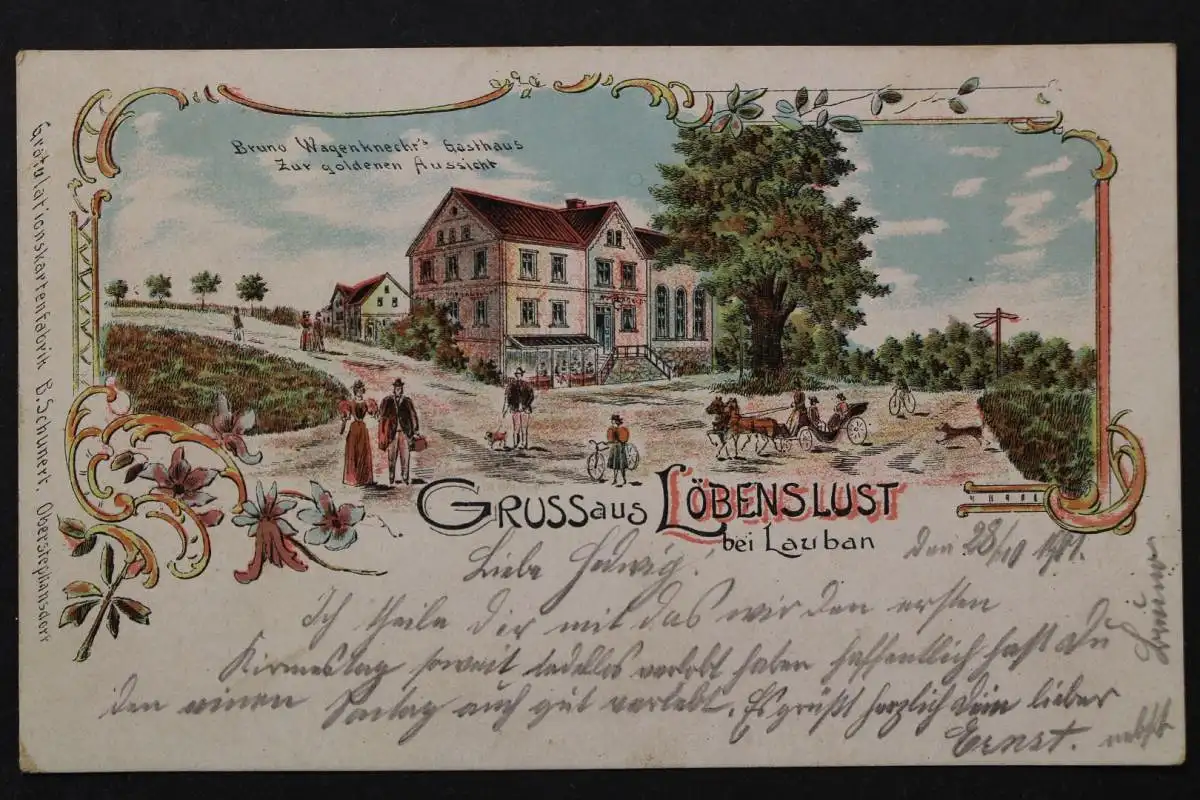 Bruno Wagenknecht's Gasthaus
Zur goldenen Aussicht
Gratulationskartenfabrik B. Schunert. Oberstephansdorf
GRUSS aus LÖBENSLUST
bei Lauban
den 28/10 1901.
Liebe Hedwig!
Ich theile dir mit das wir den ersten
Kirmestag soweit tadellos verlebt haben hoffentlich hast Du
den einen Sontag auch gut verlebt. Es grüßt herzlich Dein lieber
Ernst. nebst